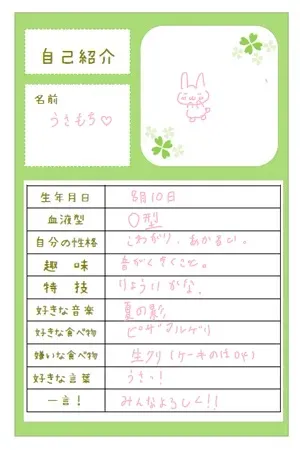 自己紹介
名前
うさもち♡
生年月日 8月10日
血液型 O型
自分の性格 こわがり、あかるい。
趣味 音がくきくこと。
特技 りょうりかな。
好きな音楽 夏の影
好きな食べ物
嫌いな食べ物 生クリ(ケーキのはOK)
好きな言葉 うさっ!
一言! みんなよろしく!!